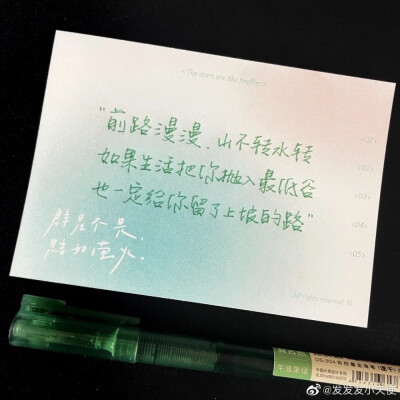 < The stars are like fireflies >
"前路漫漫，山不转水转
如果生活把你抛入最低谷
也一定给你留了上坡的路"
<01>
<02>
<03>
<04>
<05>
群星不是，
All rights reserved
牛油果绿
@发发发小天使